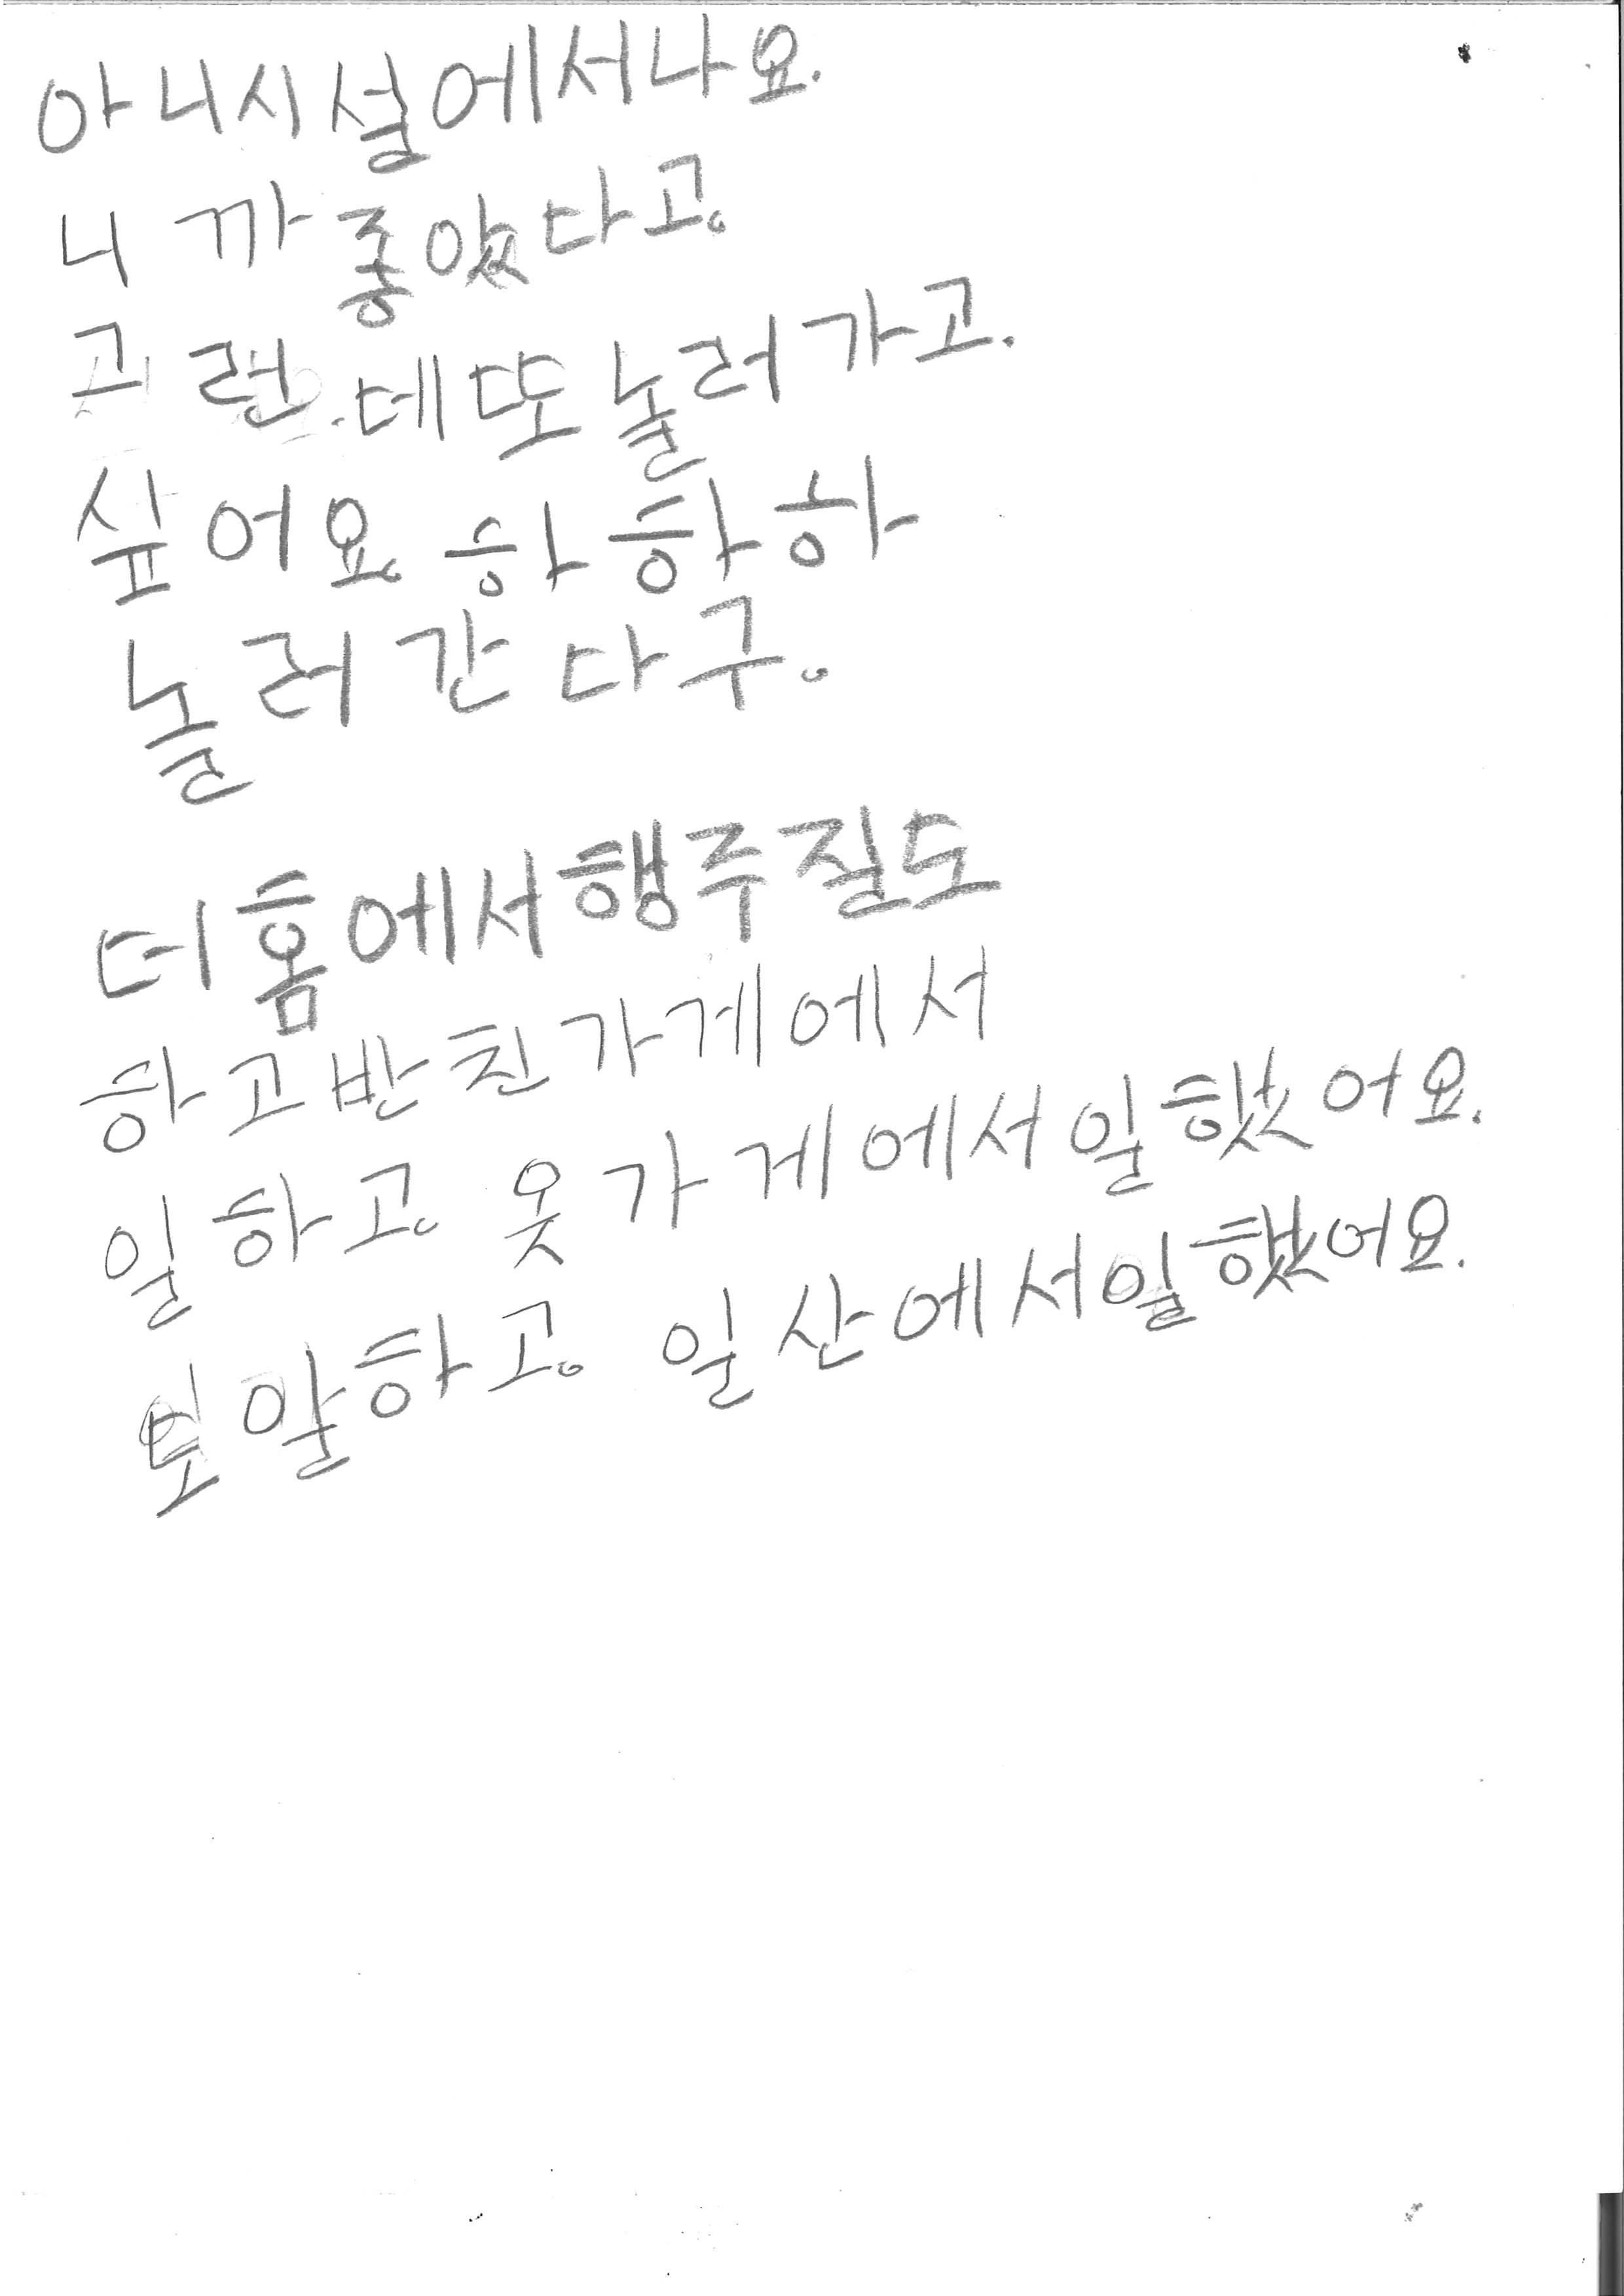 아니시설에서나요.
니까좋았다고.
그런데또놀러가고.
싶어요. 하하하
놀러간다구.
더홈에서행주질도
하고반찬가게에서
일하고. 옷가게에서일했어요.
토얄하고. 일산에서일했어요.